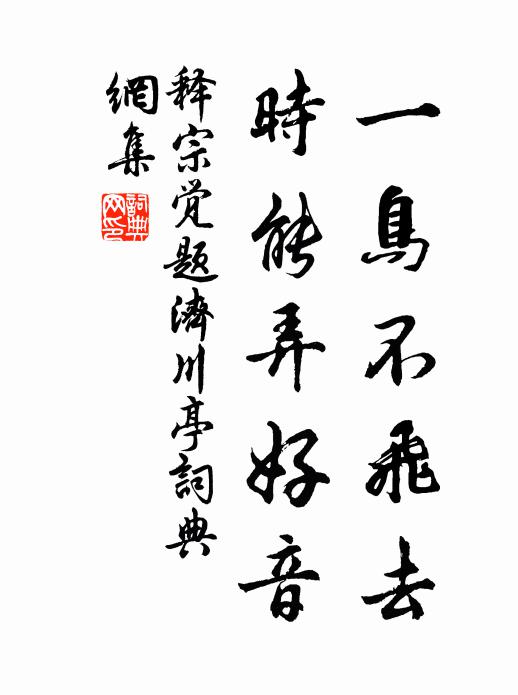 一鳥不飛去
時能弄好音
释宗觉题濟川亭詞典
網集
詞典网印